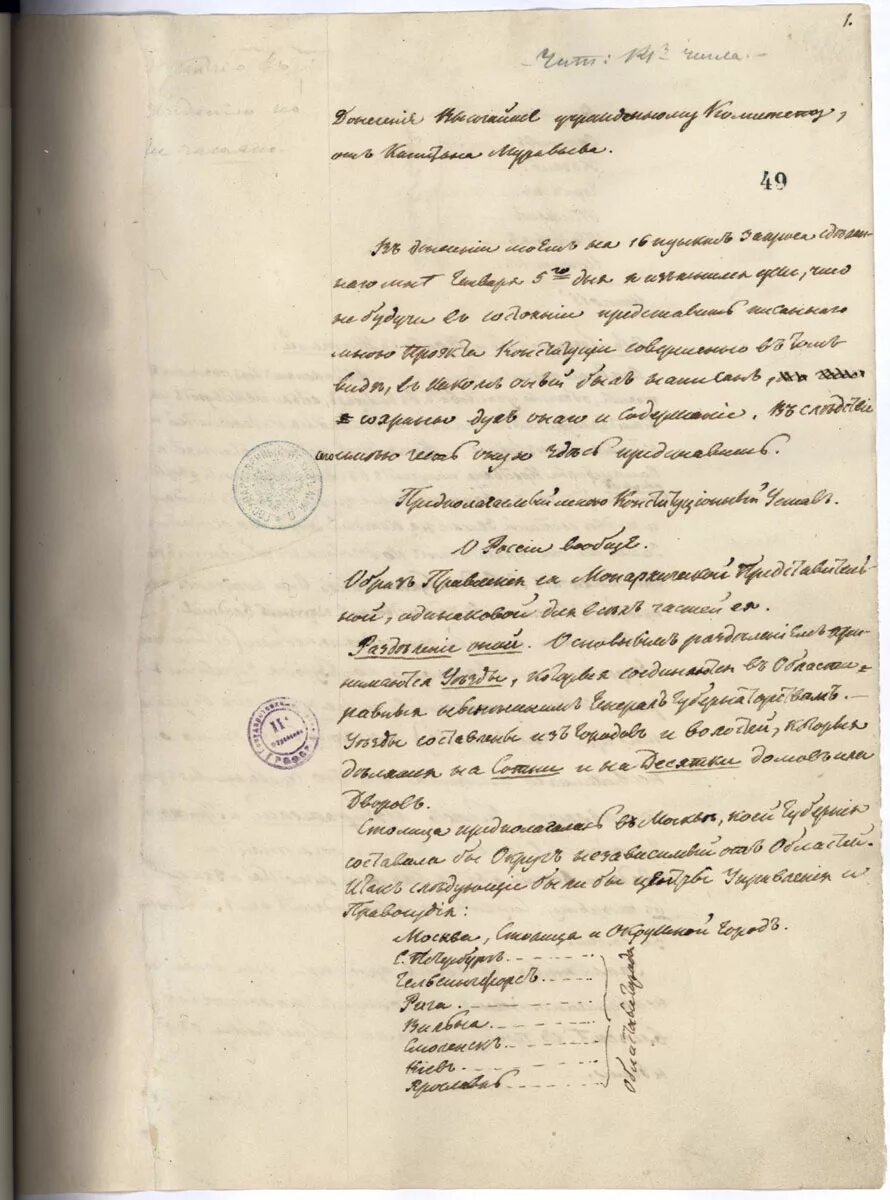 1.
Чит: 14го числа.
Донесенія Высочайше учрежденному Комитету,
отъ Капитана Муравьева.
49
Въ донесеніи моемъ на 16 пунктъ Запроса сдѣлан-
наго мнѣ Генваря 5го дня я изъяснилъ уже, что
не будучи въ состояніи представить писаннаго
мною Проэкта Конституціи совершенно въ томъ
видѣ, въ какомъ оный былъ написанъ,
сохраню духъ онаго и содержаніе. Въ слѣдствіе
имѣю честь оную здѣсь представить.
Предполагаемый мною Конституціонный Уставъ.
О Россіи вообще.
Образъ Правленія ея Монархической Представитель-
ной, одинаковой для всѣхъ частей ея.
Раздѣленіе оной. Основнымъ раздѣленіемъ при-
нимаются Уѣзды, которыя соединяются въ Области
равныя нынѣшнимъ Генералъ Губернаторствамъ.
Уѣзды составлены изъ Городовъ и волостей, которыя
дѣлятся на Сотни и на Десятки домовъ или
Дворовъ.
Столица предполагалась въ Москвѣ, коей Губернія
составила бы Округъ независимый отъ Областей.
Итакъ слѣдующіе были бы центры Управленія и
Правосудія:
Москва, Столица и Окружной Городъ.
С. Петербургъ.
Гельсингфорсъ.
Рига.
Вильна.
Смоленскъ.
Кіевъ.
Ярославль
Областные Города